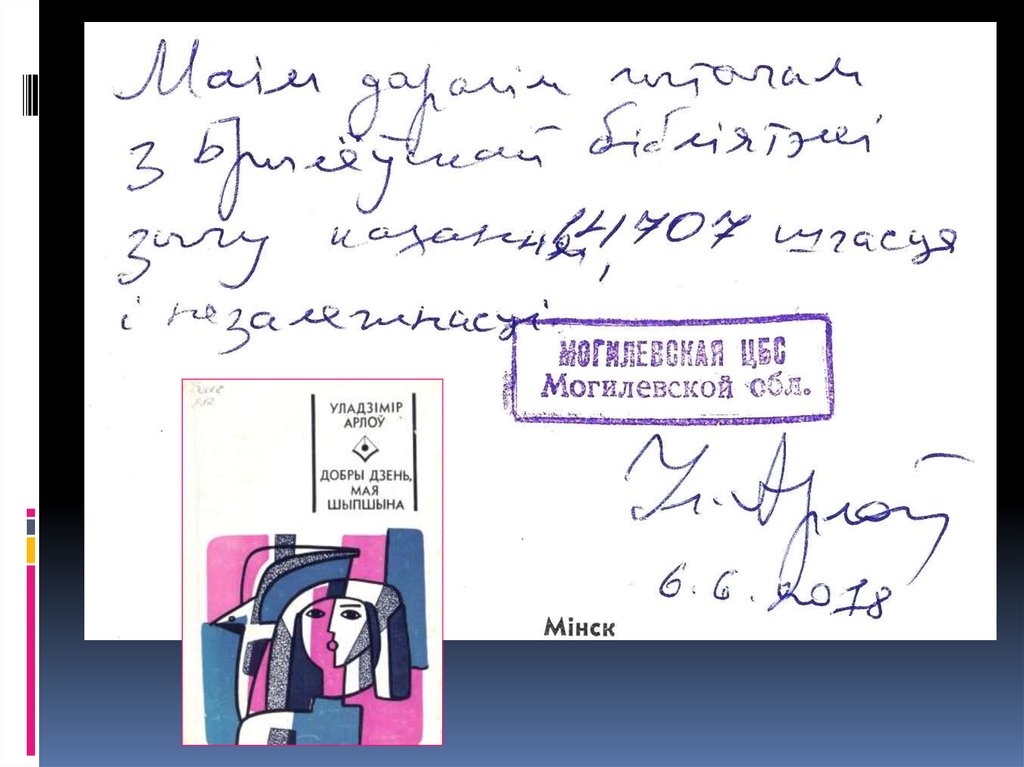 Маім дарагім чытачам
з Брылёўскай бібліятэкі
зычу кахання, 14707 шчасця
і незалежнасці.
МОГИЛЕВСКАЯ ЦБС
Могилевской обл.
УЛАДЗІМІР
АРЛОЎ
ДОБРЫ ДЗЕНЬ,
МАЯ
ШЫПШЫНА
Ул. Арлоў
6.6.2018
Мінск